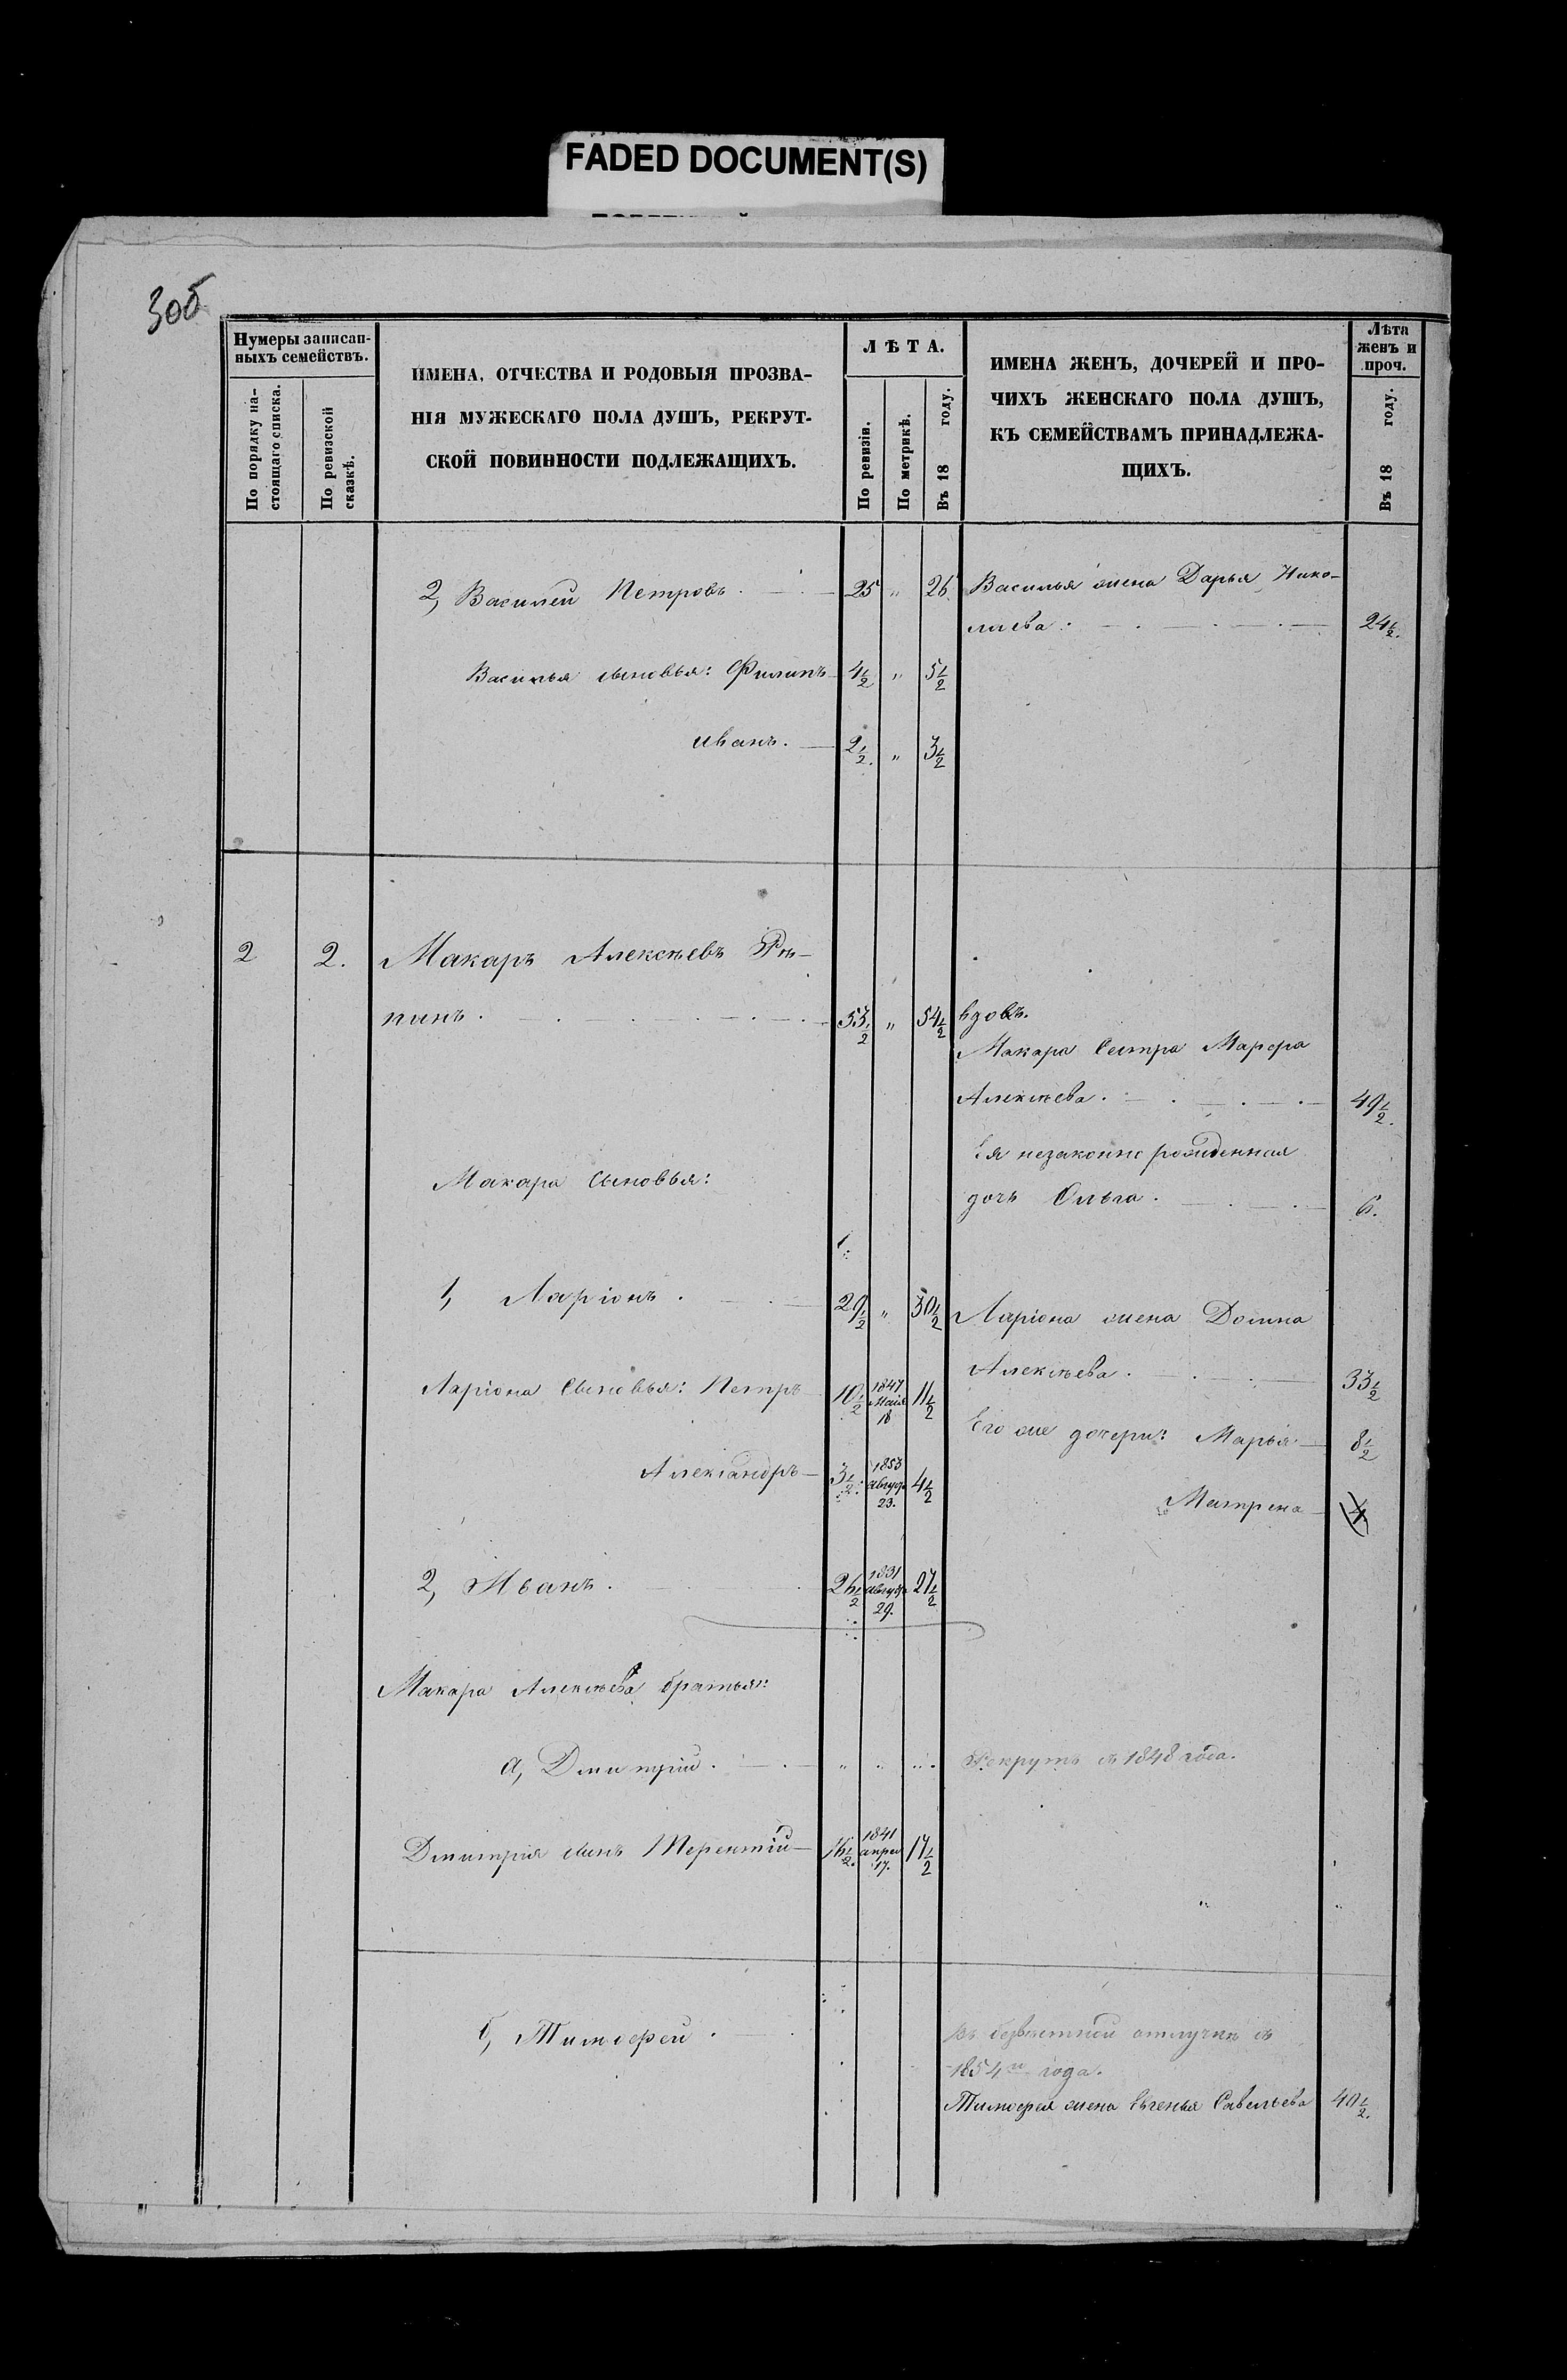 FADED DOCUMENT(S)
30б
Нумеры записан-
ныхъ семействъ.
По порядку на-
стоящаго списка.
По ревизской
сказкѣ.
ИМЕНА, ОТЧЕСТВА И РОДОВЫЯ ПРОЗВА-
НІЯ МУЖЕСКАГО ПОЛА ДУШЪ, РЕКРУТ-
СКОЙ ПОВИННОСТИ ПОДЛЕЖАЩИХЪ.
ЛѢТА.
По ревизіи.
По метрикѣ.
Въ 18 году.
ИМЕНА ЖЕНЪ, ДОЧЕРЕЙ И ПРО-
ЧИХЪ ЖЕНСКАГО ПОЛА ДУШЪ,
КЪ СЕМЕЙСТВАМЪ ПРИНАДЛЕЖА-
ЩИХЪ.
Лѣта
женъ и
проч.
Въ 18 году.
2, Василей Петровъ. 25 " 26 Василья жена Дарья Нико-
лаева. 24½.
Василья сыновья: Филипъ 4½ " 5½
Иванъ. 2½. " 3½
2 2. Макаръ Алексѣевъ Рѣ-
пинъ. 53½ " 54½ вдовъ.
Макара Сестра Марфа
Алексѣева. 49½.
Ея незаконно рожденная
Макара Сыновья:
дочь Ольга. 6.
1, Ларіонъ. 29½ " 30½ Ларіона жена Домна
Алексѣева. 33½
Ларіона Сыновья: Петръ 10½ 1847 Маія 18 11½
Его же дочери: Марья 8½
Александръ 3½. 1853 август 23. 4½
Матрена 4
2, Иванъ. 26½ 1831 август 29. 27½
Макара Алексѣева братья:
а, Дмитрій. " " " Рекрутъ съ 1848 года.
Дмитрія сынъ Терентій 16½. 1841 апрел 17. 17½
б, Тимофей.
въ безвѣстной отлучкѣ съ
1854го года.
Тимофея жена Евгенья Савельева 40½.